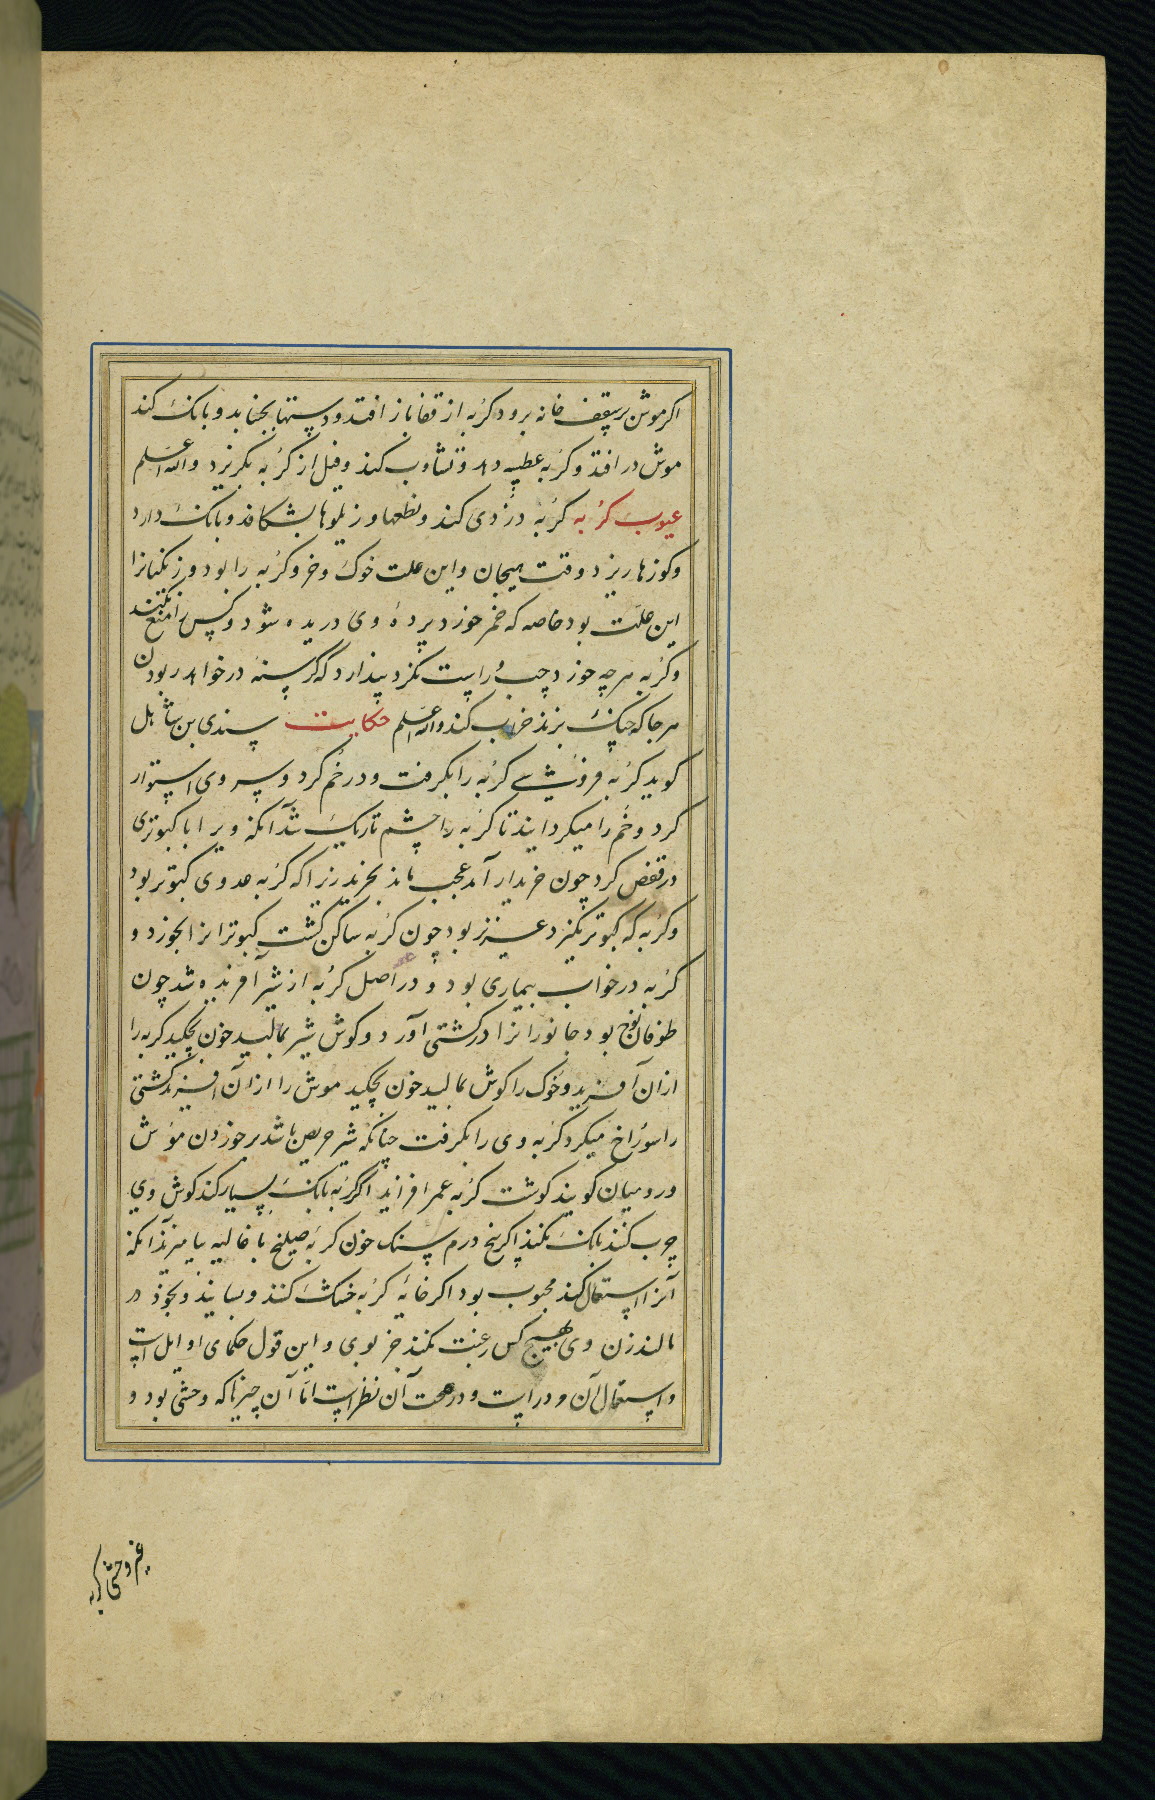 اکر موش بر سقف خانه برود کربه از قفا باز افتد و دستها بجنباند و بانک کند
موش در افتد و کربه عطسه دهد و تثاوب کند و فیل از کربه بکریزد والله اعلم
عیوب کربه کربه دزدی کند و نطعها و زیلوها بشکافد و بانک دارد
و کوزها ریزد وقت هیجان و این علت خوک و خر و کربه را بود و زنکیانرا
این علت بود خاصه که خمر خورد پردهٔ وی دریده شود و کس را منع نکنند
و کربه هرچه خورد چب و راست نکرد پندارد که کرسنه در خواهد ربودن
هر جا که چنک بزند خراب کند والله اعلم حکایت سندی بن شاهل
کوید کربه فروشی کربه را بکرفت و در خم کرد و سر وی استوار
کرد و خم را میکردانید تا کربه را چشم تاریک شد آنکه ویرا با کبوتری
در قفص کرد چون خریدار آمد عجب ماند بخرید زیرا که کربه عدوی کبوتر بود
و کربه که کبوتر نکیرد عزیز بود چون کربه ساکن کشت کبوترانرا بخورد و
کربه در خواب بیماری بود و در اصل کربه از شیر آفریده شد چون
طوفان نوح بود جانورانرا در کشتی آورد و کوش شیر بمالید خون بچکید کربه را
از ان آفرید و خوک را کوش بمالید خون بچکید موش را از ان آفرید کشتی
را سوراخ میکرد کربه وی را بکرفت چنانکه شیر حریص باشد بر خوردن موش
و رومیان کویند کوشت کربه عمر افزاید اکر کربه بانک بسیار کند کوش وی
چرب کنند بانک نکند اکر پنج درم سنک خون کربه با غالیه بیامیزند آنکه
آنرا استعمال کند محبوب بود اکر خایهٔ کربه خشک کنند و بسایند و بخود در
مالد زن وی بهیچ کس رغبت نکند جز بوی و این قول حکمای اوایل است
و استعمال آن دور است و در صحت آن نظر است اما آن چیزها که وحشی بود و